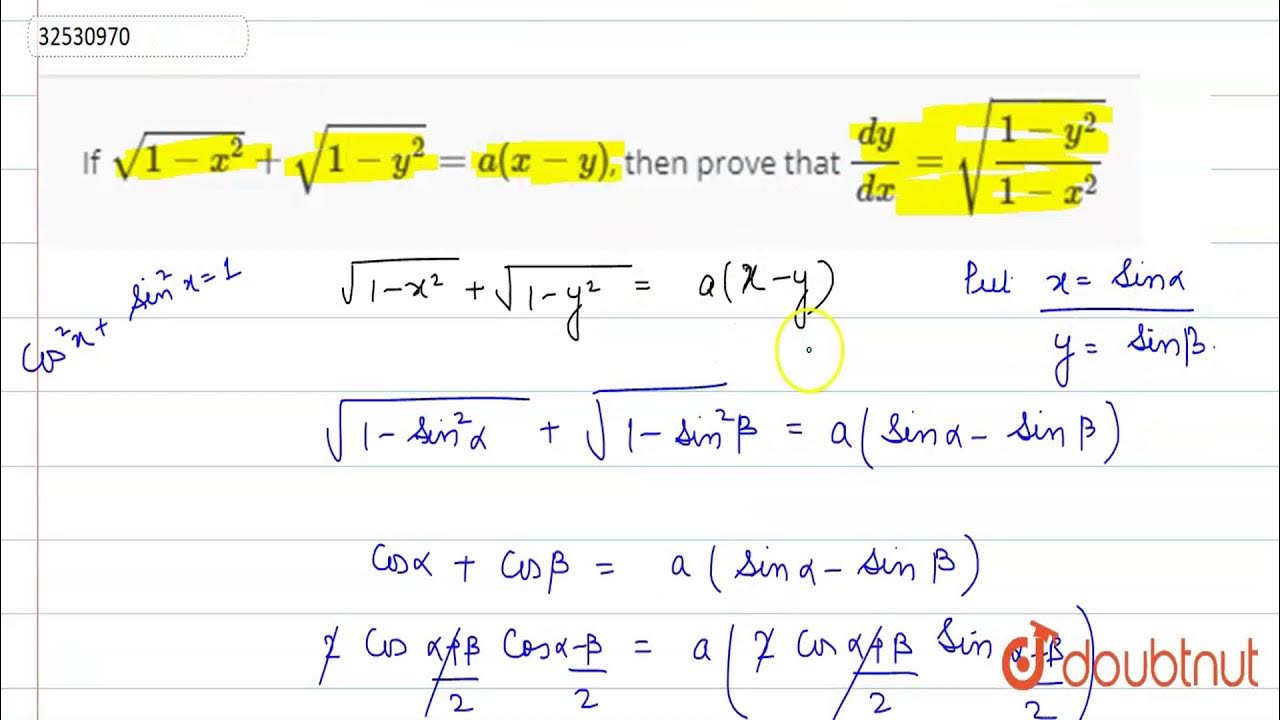 32530970
If √(1 − x²) + √(1 − y²) = a(x − y), then prove that dy/dx = √((1 − y²)/(1 − x²))
cos²x + sin²x = 1
√(1 − x²) + √(1 − y²) = a(x − y)
Put x = sinα
y = sinβ.
√(1 − sin²α) + √(1 − sin²β) = a(sinα − sinβ)
cosα + cosβ = a(sinα − sinβ)
2 cos (α+β)/2 cos (α−β)/2 = a(2 cos (α+β)/2 sin (α−β)/2)
doubtnut